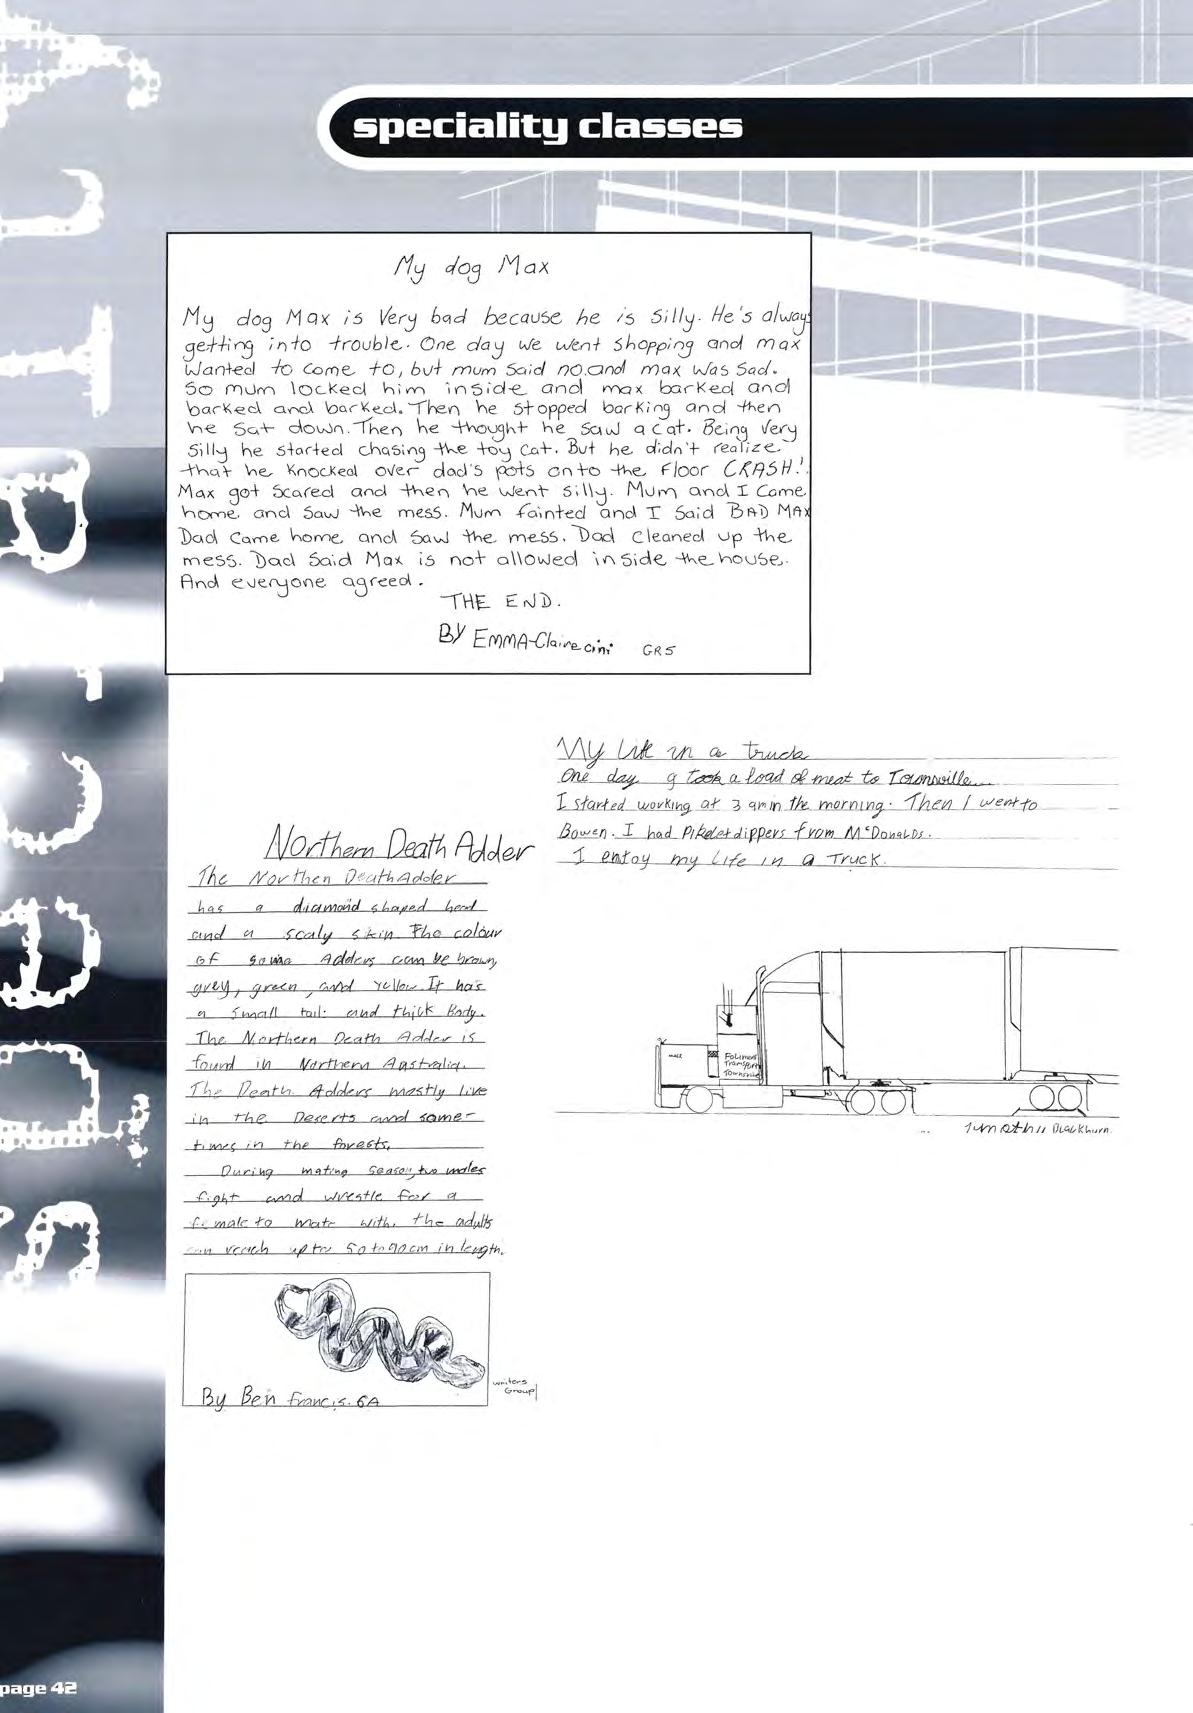 speciality classes
My dog Max
My dog Max is Very bad because he is silly. He's always
getting into trouble. One day we went shopping and max
wanted to come to, but mum said no.and max was sad.
So mum locked him inside and max barked and
barked and barked. Then he stopped barking and then
he sat down. Then he thought he saw a cat. Being very
silly he started chasing the toy cat. But he didn't realize
that he knocked over dad's pots onto the floor CRASH!!
Max got scared and then he went silly. Mum and I came
home and saw the mess. Mum fainted and I said BAD MAX
Dad came home and saw the mess. Dad cleaned up the
mess. Dad said Max is not allowed inside the house.
And everyone agreed.
THE END.
BY EMMA-Claire cini GR5
My Life in a truck
One day I took a load of meat to Townsville.
I started working at 3 am in the morning. Then I went to
Bowen. I had Pikelet dippers from McDonalds.
I enjoy my life in a Truck.
Northern Death Adder
The Northen Death Adder
has a diamond shaped head
and a scaly skin. The colour
of some Adders can be brown,
grey, green, and yellow. It has
a small tail and thick Body.
The Northern Death Adder is
found in Northern Australia.
The Death Adders mostly live
in the Deserts and some-
times in the forests.
During mating season, two males
fight and wrestle for a
female to mate with. the adults
can reach up to 50 to 90cm in length.
By Ben Francis. 6A
writers
Group
MACK
Transport
Townsville
Timothy Blackburn.
page 42